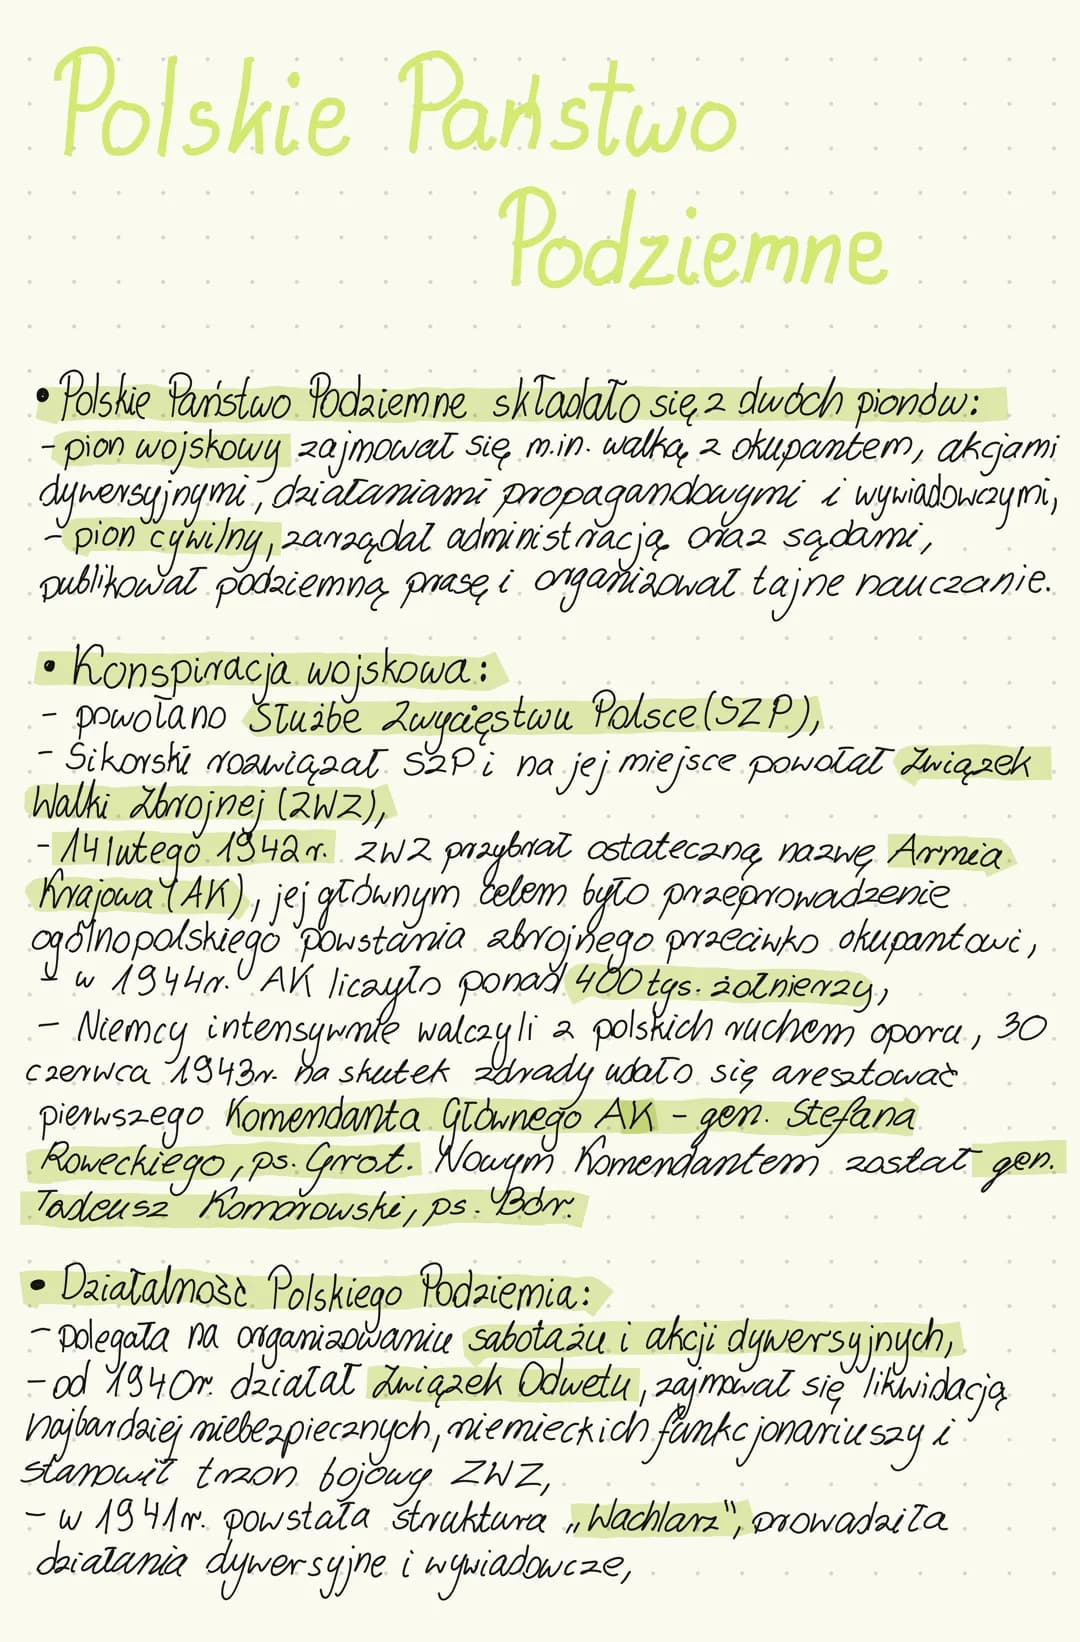 Polskie Państwo
Podziemne
• Polskie Państwo Podziemne składało się z dwóch pionów:
- pion wojskowy zajmował się m.in. walką z okupantem, akcjami
dywersyjnymi, działaniami propagandowymi i wywiadowczymi,
- pion cywilny, zarządał administracją oraz sądami,
publikował podziemną prasę i organizował tajne nauczanie.
• Konspiracja wojskowa:
- powołano Służbe Zwycięstwu Polsce (SZP),
- Sikorski rozwiązał SZP i na jej miejsce powołał Związek
Walki Zbrojnej (ZWZ),
- 14 lutego 1942r. ZWZ przybrał ostateczną nazwę Armia
Krajowa (AK), jej głównym celem było przeprowadzenie
ogólnopolskiego powstania zbrojnego przeciwko okupantowi,
- w 1944r. AK liczyło ponad 400 tys. żołnierzy,
- Niemcy intensywnie walczyli z polskich ruchem oporu, 30
czerwca 1943r. na skutek zdrady udało się aresztować
pierwszego Komendanta Głównego AK - gen. Stefana
Roweckiego, ps. Grot. Nowym Komendantem został gen.
Tadeusz Komorowski, ps. Bór.
• Działalność Polskiego Podziemia:
- polegała na organizowaniu sabotażu i akcji dywersyjnych,
- od 1940r. działał Związek Odwetu, zajmował się likwidacją
najbardziej niebezpiecznych, niemieckich funkcjonariuszy i
stanowił trzon bojowy ZWZ,
- w 1941r. powstała struktura „Wachlarz", prowadziła
działania dywersyjne i wywiadowcze,